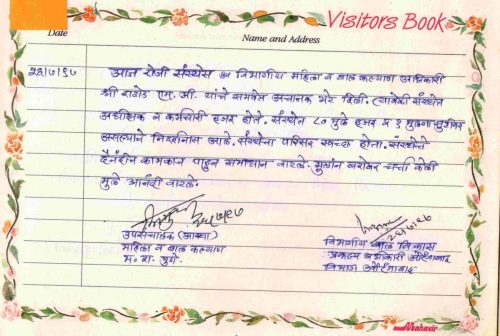 Visitors Book
Date
Name and Address
२८/७/९७
आज रोजी संस्थेस विभागीय महिला व बाल कल्याण अधिकारी
श्री राठोड एम. जी. यांचे समवेत अचानक भेट दिली. त्यावेळी संस्थेत
अधीक्षिक व कर्मचारी हजर होते. संस्थेत ८० मुले हजर व १ मुलगा
असल्याचे निदर्शनास आले. संस्थेचा परिसर स्वच्छ होता. संस्थेचे
दैनंदीन कामकाज पाहून समाधान वाटले. मुलांन बरोबर चर्चा केली
मुले आनंदी वाटले.
उपसंचालक
महिला व बाल कल्याण
म. रा. पुणे.
विभागीय बाल विकास
प्रकल्प अधिकारी औरंगाबाद
विभाग औरंगाबाद
Mahavir